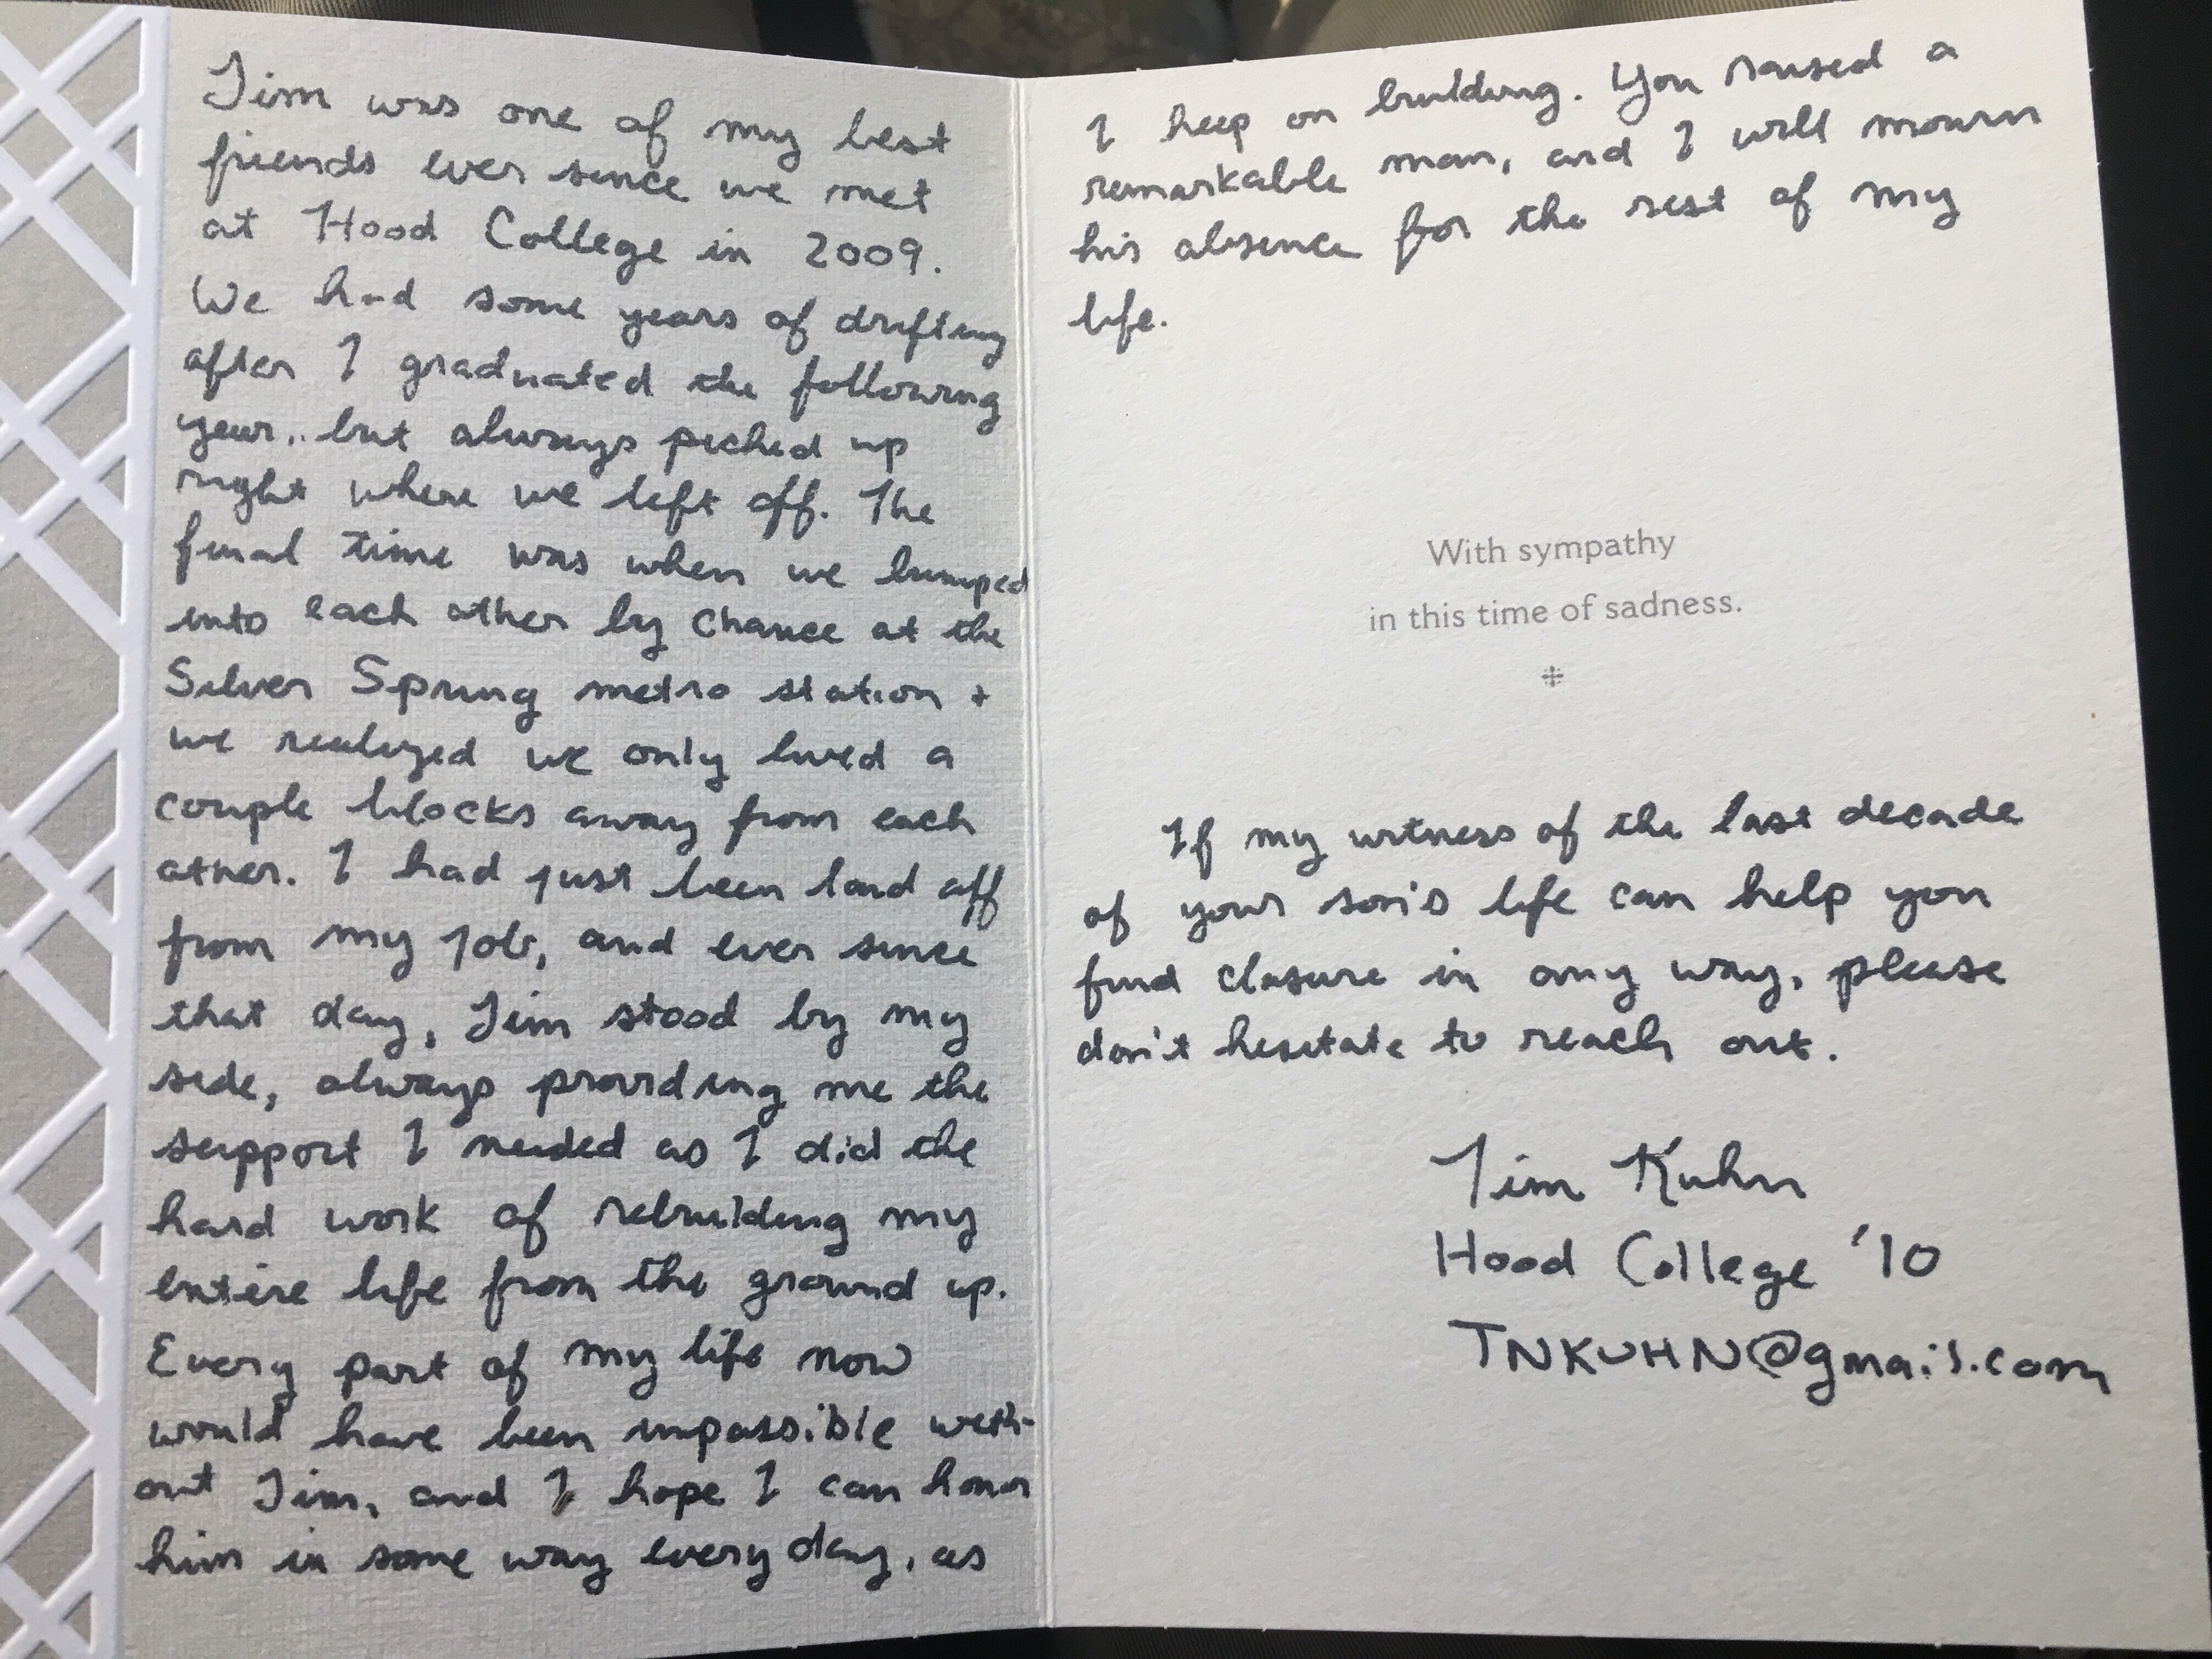 Jim was one of my best
friends ever since we met
at Hood College in 2009.
We had some years of drifting
after I graduated the following
year, but always picked up
right where we left off. The
final time was when we bumped
into each other by chance at the
Silver Spring metro station +
we realized we only lived a
couple blocks away from each
other. I had just been laid off
from my job, and ever since
that day, Jim stood by my
side, always providing me the
support I needed as I did the
hard work of rebuilding my
entire life from the ground up.
Every part of my life now
would have been impossible with-
out Jim, and I hope I can honor
him in some way every day, as
I keep on building. You raised a
remarkable man, and I will mourn
his absence for the rest of my
life.
With sympathy
in this time of sadness.
If my witness of the last decade
of your son's life can help you
find closure in any way, please
don't hesitate to reach out.
Tim Kuhn
Hood College '10
TNKUHN@gmail.com